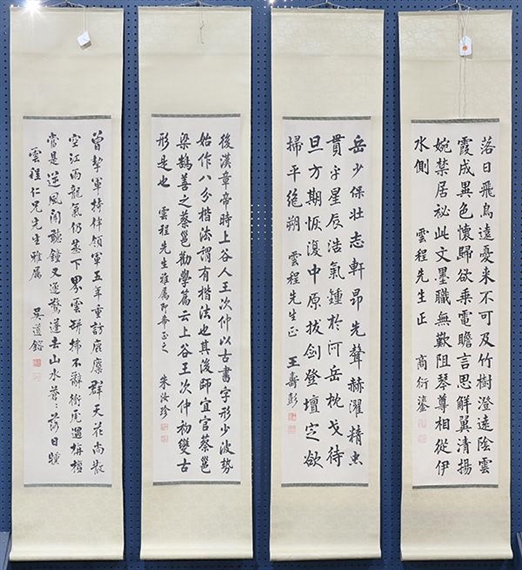 落日飛鳥遠憂來不可及竹樹澄遠陰雲
霞成異色懷歸欲乘電瞻言思解翼清揚
婉禁居祕此文墨職無歡阻琴尊相從伊
水側 雲程先生正 商衍鎏
岳少保壯志軒昂先聲赫濯精忠
貫乎星辰浩氣鍾於河岳枕戈待
旦方期恢復中原拔劍登壇定欲
掃平絕朔 雲程先生正 王壽彭
後漢章帝時上谷人王次仲以古書字形少波勢
始作八分楷法謂有楷法也其後師宜官蔡邕
梁鵠善之蔡邕勸學篇云上谷王次仲初變古
形是也 雲程先生雅属即希正之 朱汝珍
曾挈軍持伴領軍五年重訪羣天花尚散
空江雨龍氣仍蒸下界雲缾拂不辭虎過檀
常是逆風聞聽鐘又逐驚蓬去山水蒼蒼落日曛
雲程仁兄先生雅属 吳道鎔